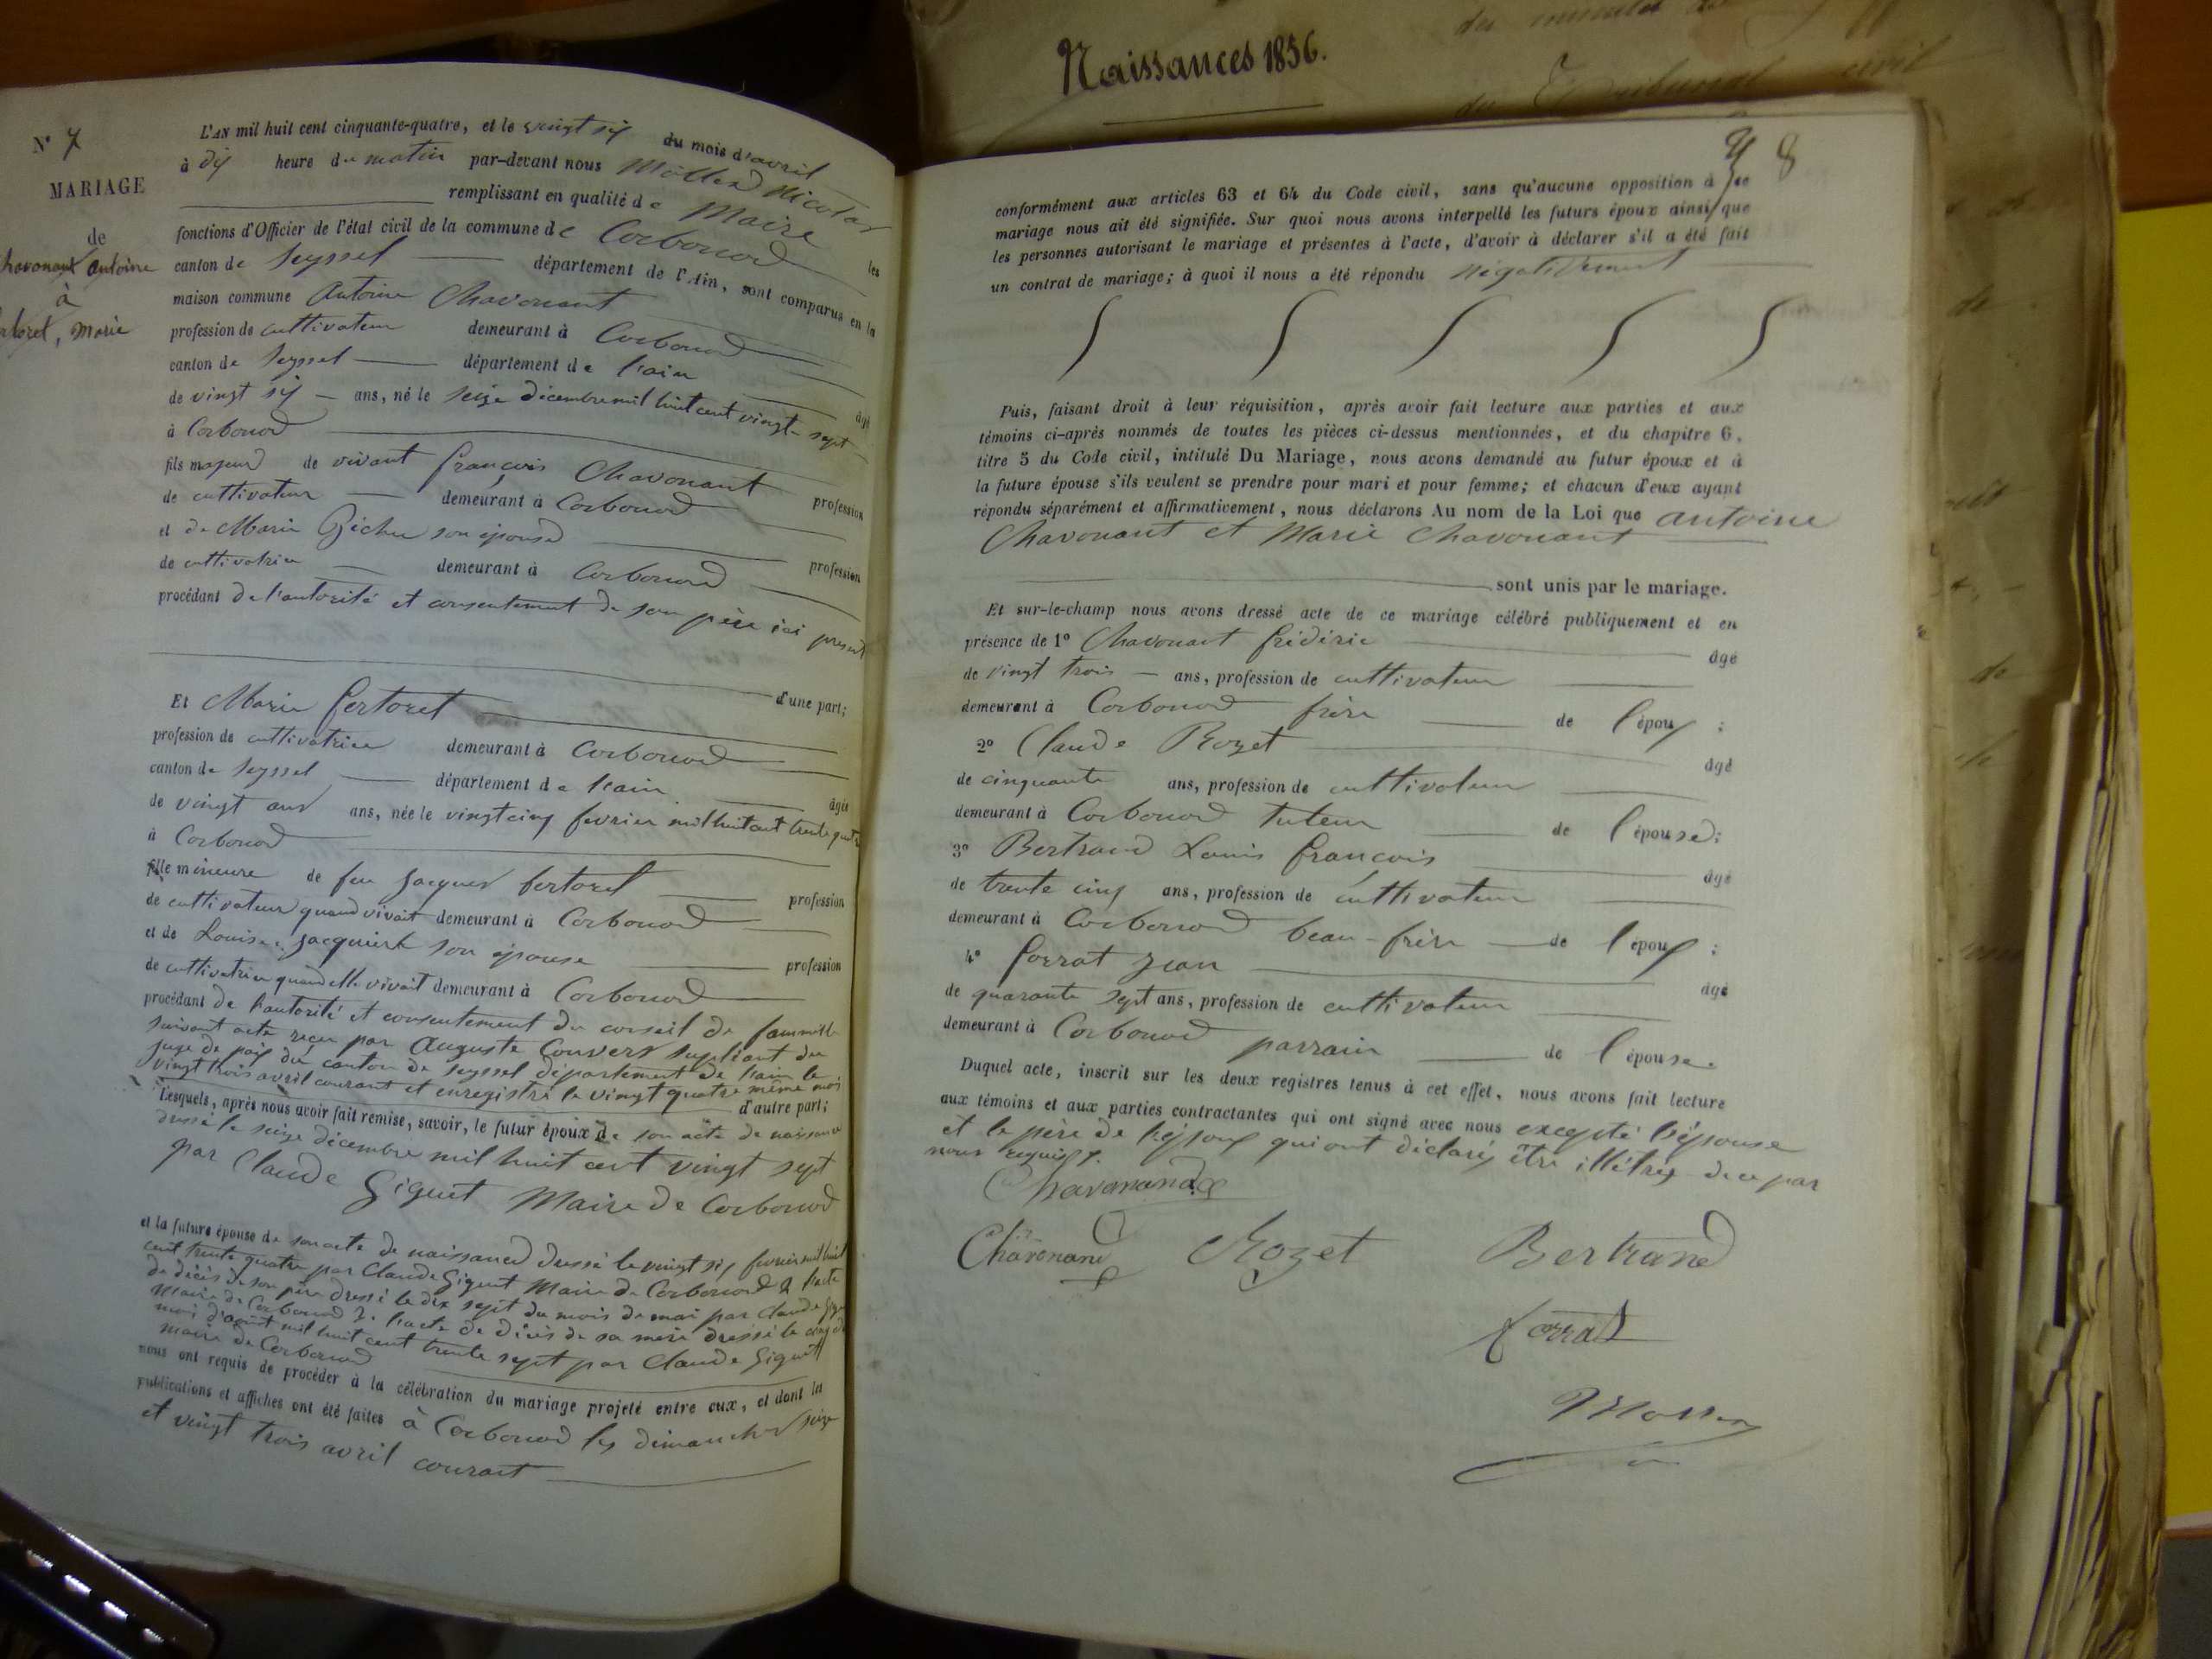 Naissances 1856.
du Tribunal civil
N° 7
MARIAGE
de
Chavonant Antoine
à
Fertoret, Marie
L'AN mil huit cent cinquante-quatre, et le vingt six du mois d'avril
à dix heure du matin par-devant nous Mollex Nicolas
remplissant en qualité de Maire les
fonctions d'Officier de l'état civil de la commune de Corbonod
canton de Seyssel département de l'Ain, sont comparus en la
maison commune Antoine Chavonant
profession de cultivateur demeurant à Corbonod
canton de Seyssel département de l'ain âgé
de vingt six ans, né le seize décembre mil huit cent vingt-sept
à Corbonod
fils majeur de vivant françois Chavonant profession
de cultivateur demeurant à Corbonod
et de Marie son épouse profession
de cultivatrice demeurant à Corbonod
procédant de l'autorité et consentement de son père ici présent
d'une part;
Et Marie fertoret
profession de cultivatrice demeurant à Corbonod
canton de Seyssel département de l'ain âgée
de vingt ans ans, née le vingt cinq fevrier mil huit cent trente quatre
à Corbonod
fille mineure de feu Jacques fertoret profession
de cultivateur quand vivait demeurant à Corbonod
et de Louise Jacquiert son épouse profession
de cultivatrice quand elle vivait demeurant à Corbonod
procédant de l'autorité et consentement du conseil de fammille
suivant acte reçu par Auguste Couvers supléant du
juge de paix du canton de Seyssel département de l'ain le
vingt trois avril courant et enregistré le vingt quatre même mois
d'autre part;
Lesquels, après nous avoir fait remise, savoir, le futur époux de son acte de naissance
dressé le seize décembre mil huit cent vingt sept
par Claude Giguet Maire de Corbonod
et la future épouse de son acte de naissance dressé le vingt six fevrier mil huit
cent trente quatre par Claude Giguet Maire de Corbonod 2 l'acte
de décès de son père dressé le dix sept du mois de mai par Claude Giguet
Maire de Corbonod 3. l'acte de décès de sa mère dressé le cinq du
mois d'août mil huit cent trente sept par Claude Giguet
maire de Corbonod
nous ont requis de procéder à la célébration du mariage projeté entre eux, et dont les
publications et affiches ont été faites à Corbonod les dimanches seize
et vingt trois avril courant
8
conformément aux articles 63 et 64 du Code civil, sans qu'aucune opposition à ce
mariage nous ait été signifiée. Sur quoi nous avons interpellé les futurs époux ainsi que
les personnes autorisant le mariage et présentes à l'acte, d'avoir à déclarer s'il a été fait
un contrat de mariage; à quoi il nous a été répondu négativement
Puis, faisant droit à leur réquisition, après avoir fait lecture aux parties et aux
témoins ci-après nommés de toutes les pièces ci-dessus mentionnées, et du chapitre 6,
titre 5 du Code civil, intitulé Du Mariage, nous avons demandé au futur époux et à
la future épouse s'ils veulent se prendre pour mari et pour femme; et chacun d'eux ayant
répondu séparément et affirmativement, nous déclarons Au nom de la Loi que antoine
Chavonant et Marie Chavonant
sont unis par le mariage.
Et sur-le-champ nous avons dressé acte de ce mariage célébré publiquement et en
présence de 1° Chavonant frédéric âgé
de vingt trois ans, profession de cultivateur
demeurant à Corbonod frère de l'époux :
2° Claude Rozet âgé
de cinquante ans, profession de cultivateur
demeurant à Corbonod tuteur de l'épouse;
3° Bertrand Louis françois âgé
de trente cinq ans, profession de cultivateur
demeurant à Corbonod beau-frère de l'époux :
4° forrat Jean âgé
de quarante sept ans, profession de cultivateur
demeurant à Corbonod parrain de l'épouse.
Duquel acte, inscrit sur les deux registres tenus à cet effet, nous avons fait lecture
aux témoins et aux parties contractantes qui ont signé avec nous excepté l'épouse
et le père de l'époux qui ont déclaré être illétrés de ce par
nous requis.
Chavonand
Chavonand Rozet Bertrand
forrat
Mollex